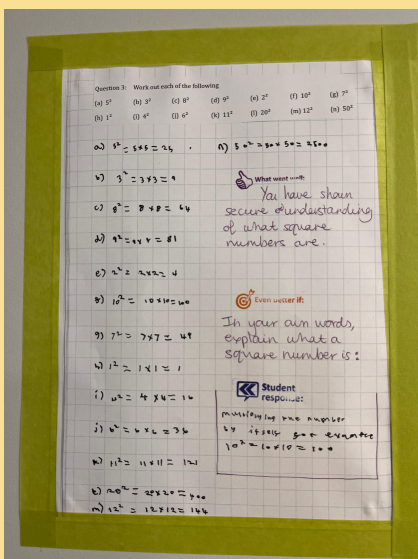 Question 3: Work out each of the following
(a) 5² (b) 3² (c) 8² (d) 9² (e) 2² (f) 10² (g) 7²
(h) 1² (i) 4² (j) 6² (k) 11² (l) 20² (m) 12² (n) 50²
a) 5² = 5×5 = 25
n) 50² = 50 × 50 = 2500
b) 3² = 3×3 = 9
c) 8² = 8 × 8 = 64
d) 9² = 9×9 = 81
e) 2² = 2×2 = 4
10² = 10×10=100
g) 7² = 7×7 = 49
h) 1² = 1×1 = 1
i) 4² = 4 ×4 = 16
j) 6² = 6 × 6 = 36
k) 11² = 11×11 = 121
20² = 20×20 = 400
m) 12² = 12×12 = 144
What went well:
You have shown
secure understanding
of what square
numbers are.
Even better if:
In your own words,
explain what a
square number is:
Student
response:
multiplying the number
by itself for example
10² = 10×10 = 100